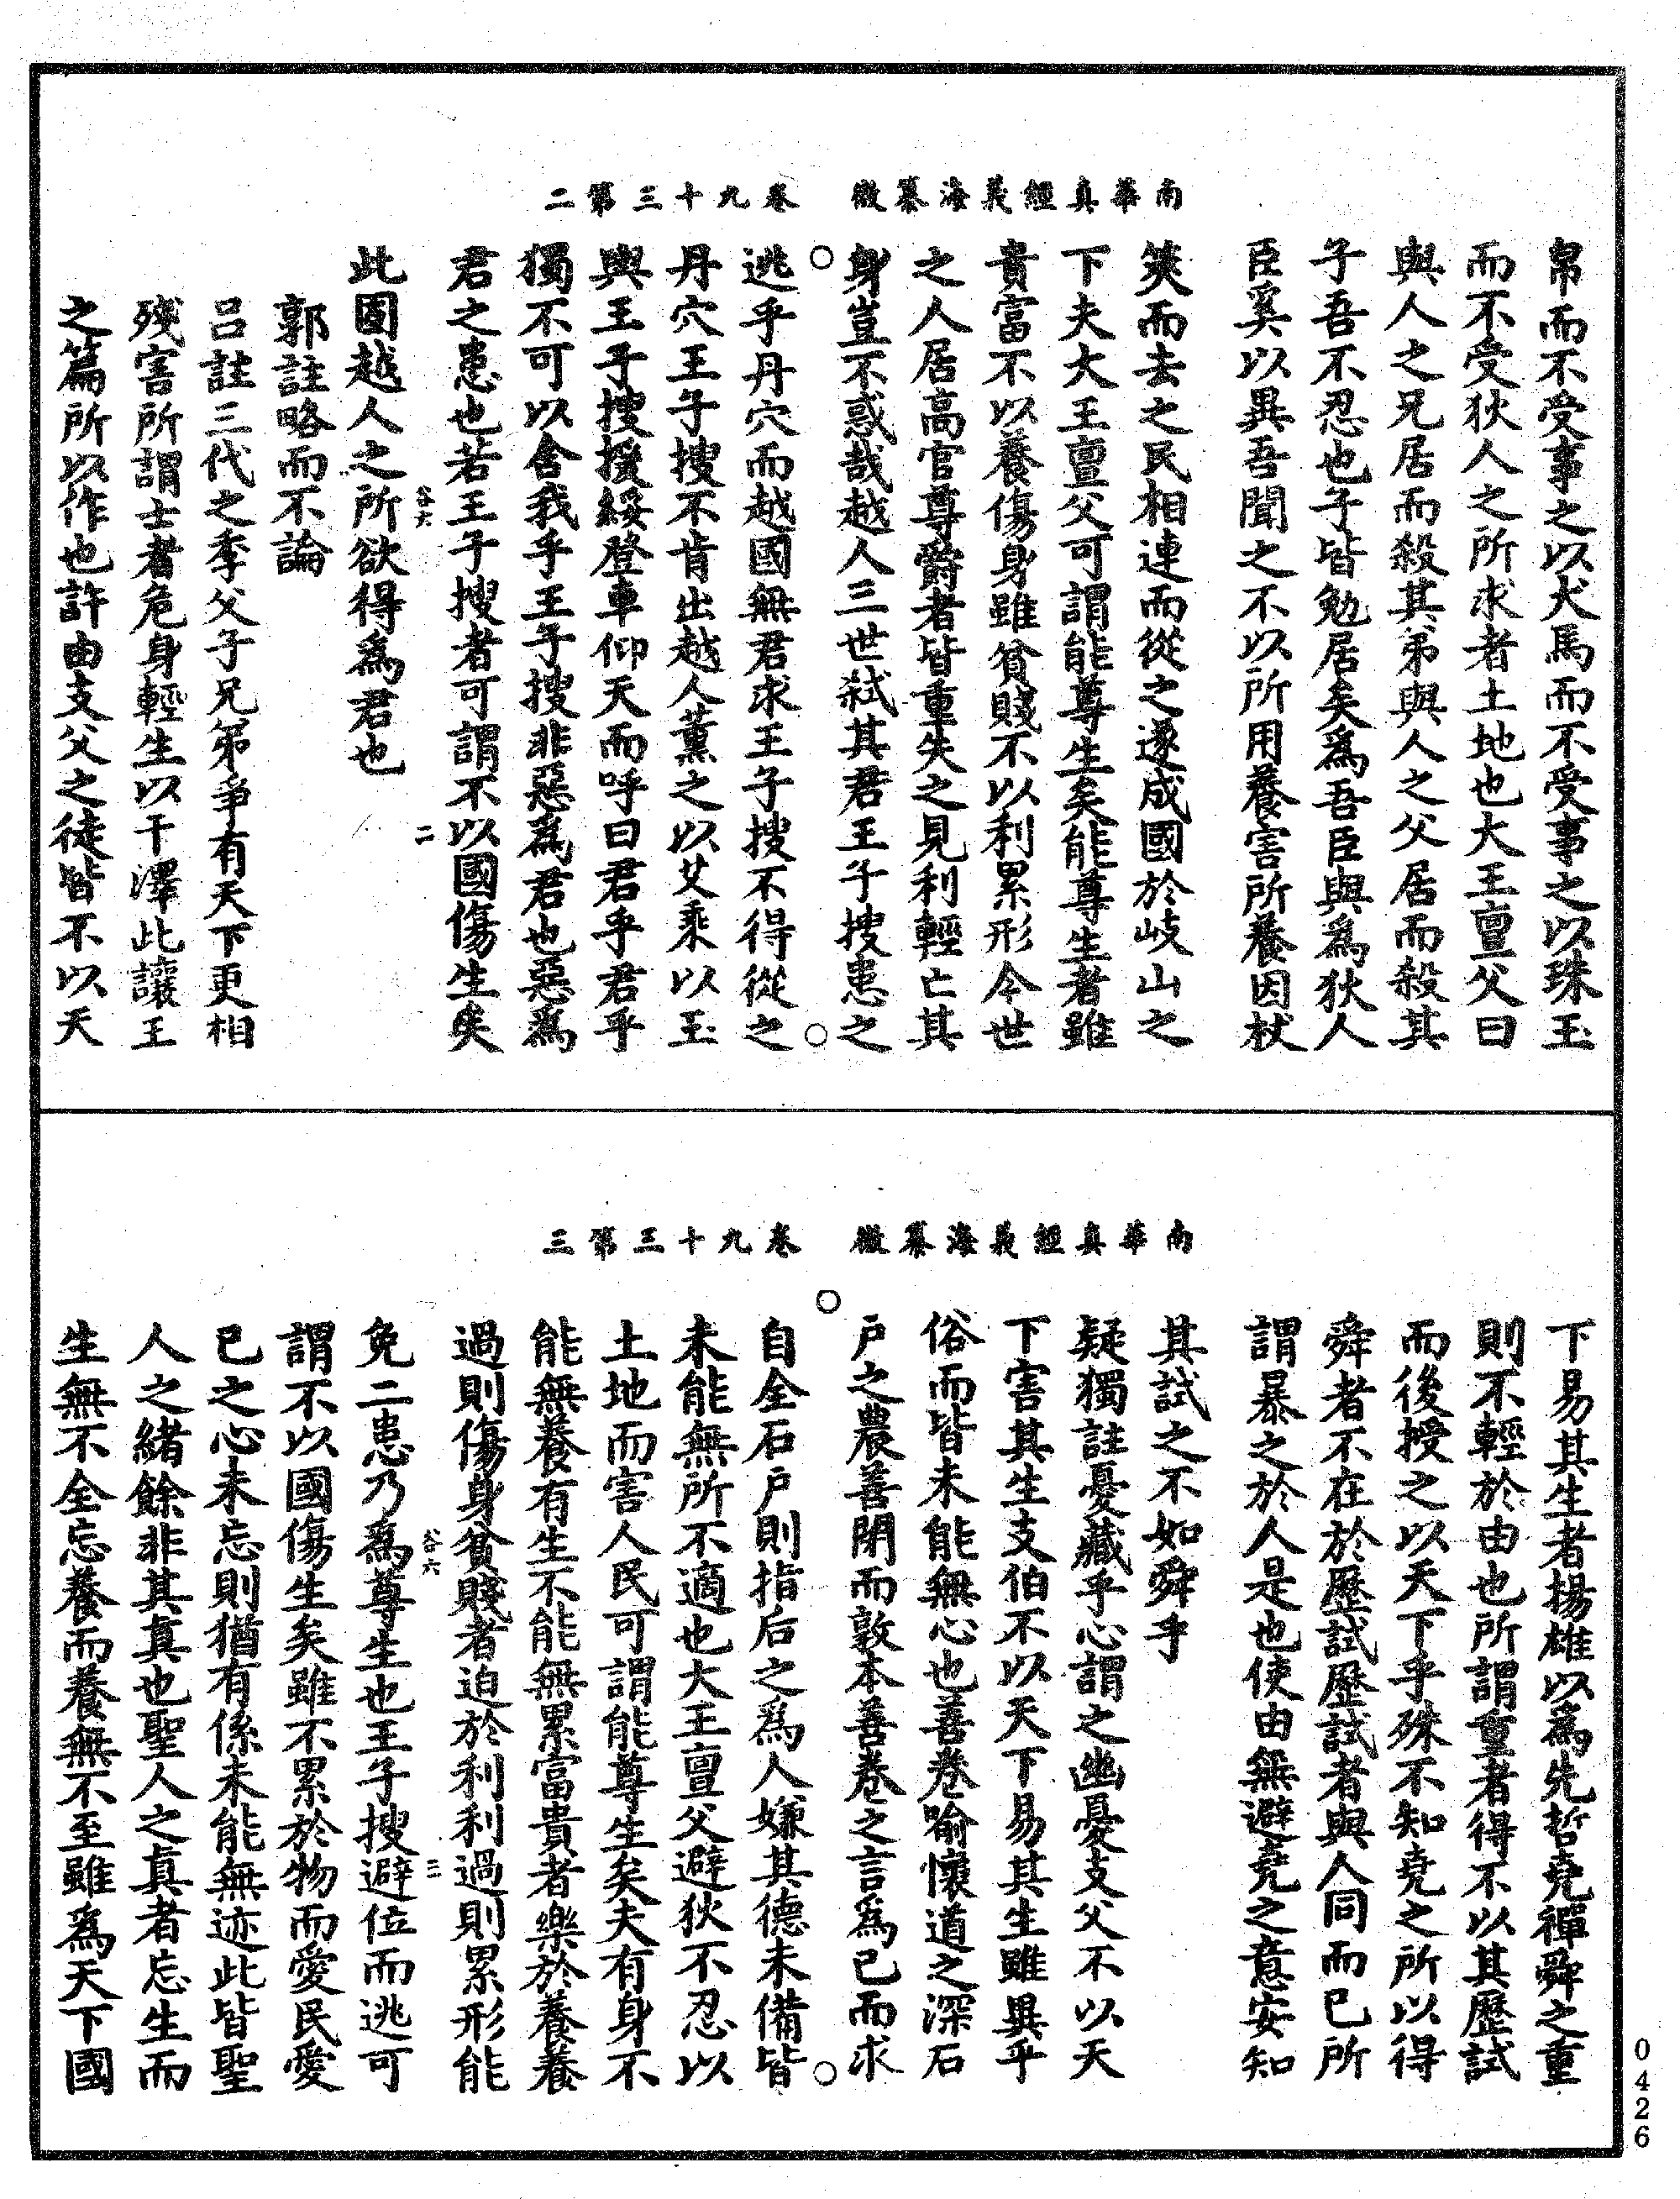 南華真經義海纂微　卷九十三第二
帛而不受事之以犬馬而不受事之以珠玉
而不受狄人之所求者土地也大王亶父曰
與人之兄居而殺其弟與人之父居而殺其
子吾不忍也子皆勉居矣為吾臣與為狄人
臣奚以異吾聞之不以所用養害所養因杖
筴而去之民相連而從之遂成國於岐山之
下夫大王亶父可謂能尊生矣能尊生者雖
貴富不以養傷身雖貧賤不以利累形今世
之人居高官尊爵者皆重失之見利輕亡其
身豈不惑哉越人三世弒其君王子搜患之
逃乎丹穴而越國無君求王子搜不得從之
丹穴王子搜不肯出越人薰之以艾乘以玉
輿王子搜援綏登車仰天而呼曰君乎君乎
獨不可以舍我乎王子搜非惡為君也惡為
君之患也若王子搜者可謂不以國傷生矣
谷六　二
此固越人之所欲得為君也
郭註略而不論
呂註三代之季父子兄弟爭有天下更相
殘害所謂士者危身輕生以干澤此讓王
之篇所以作也許由支父之徒皆不以天
南華真經義海纂微　卷九十三第三
下易其生者揚雄以為先哲堯禪舜之重
則不輕於由也所謂重者得不以其歷試
而後授之以天下乎殊不知堯之所以得
舜者不在於歷試歷試者與人同而已所
謂暴之於人是也使由無避堯之意安知
其試之不如舜乎
疑獨註憂藏乎心謂之幽憂支父不以天
下害其生支伯不以天下易其生雖異乎
俗而皆未能無心也善卷喻懷道之深石
戶之農善閉而敦本善卷之言為已而求
自全石戶則指后之為人嫌其德未備皆
未能無所不適也大王亶父避狄不忍以
土地而害人民可謂能尊生矣夫有身不
能無養有生不能無累富貴者樂於養養
過則傷身貧賤者迫於利利過則累形能
谷六　三
免二患乃為尊生也王子搜避位而逃可
謂不以國傷生矣雖不累於物而愛民愛
已之心未忘則猶有係未能無迹此皆聖
人之緒餘非其真也聖人之真者忘生而
生無不全忘養而養無不至雖為天下國
0426